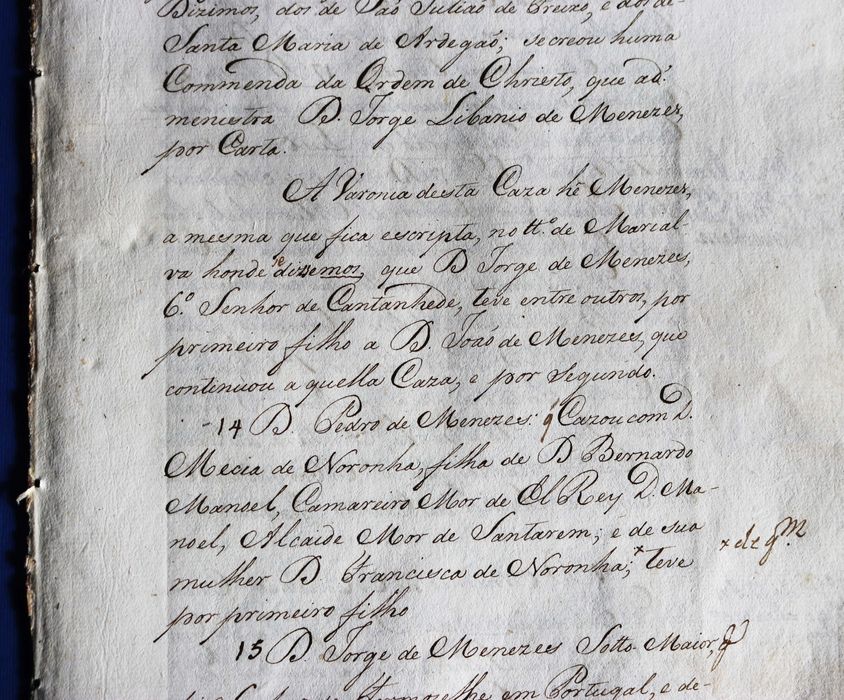 Dizimos, dos de São Julião de Freixo, e dos de-
Santa Maria de Ardegaõ; se creou huma
Commenda da Ordem de Christo, que ad.
menistra D. Jorge Libanio de Menezes,
por Carta.
A Varonia deesta Caza hé Menezes,
a mesma que fica escripta, no tt.º de Marial-
va honde se dizemos, que D Jorge de Menezes,
6.º Senhor de Cantanhede, teve entre outros, por
primeiro filho a D. Joaõ de Menezes, que
continuou a quella Caza, e por segundo.
14 D. Pedro de Menezes: q̃ Cazou com D.
Mecia de Noronha, filha de D Bernardo
Manoel, Camareiro Mor de El Rey D. Ma-
noel, Alcaide Mor de Santarem; e de sua
mulher D. Francisca de Noronha; × teve
× de q.m
por primeiro filho
15 D. Jorge de Menezes Sotto Maior, q̃
em Portugal, e de-